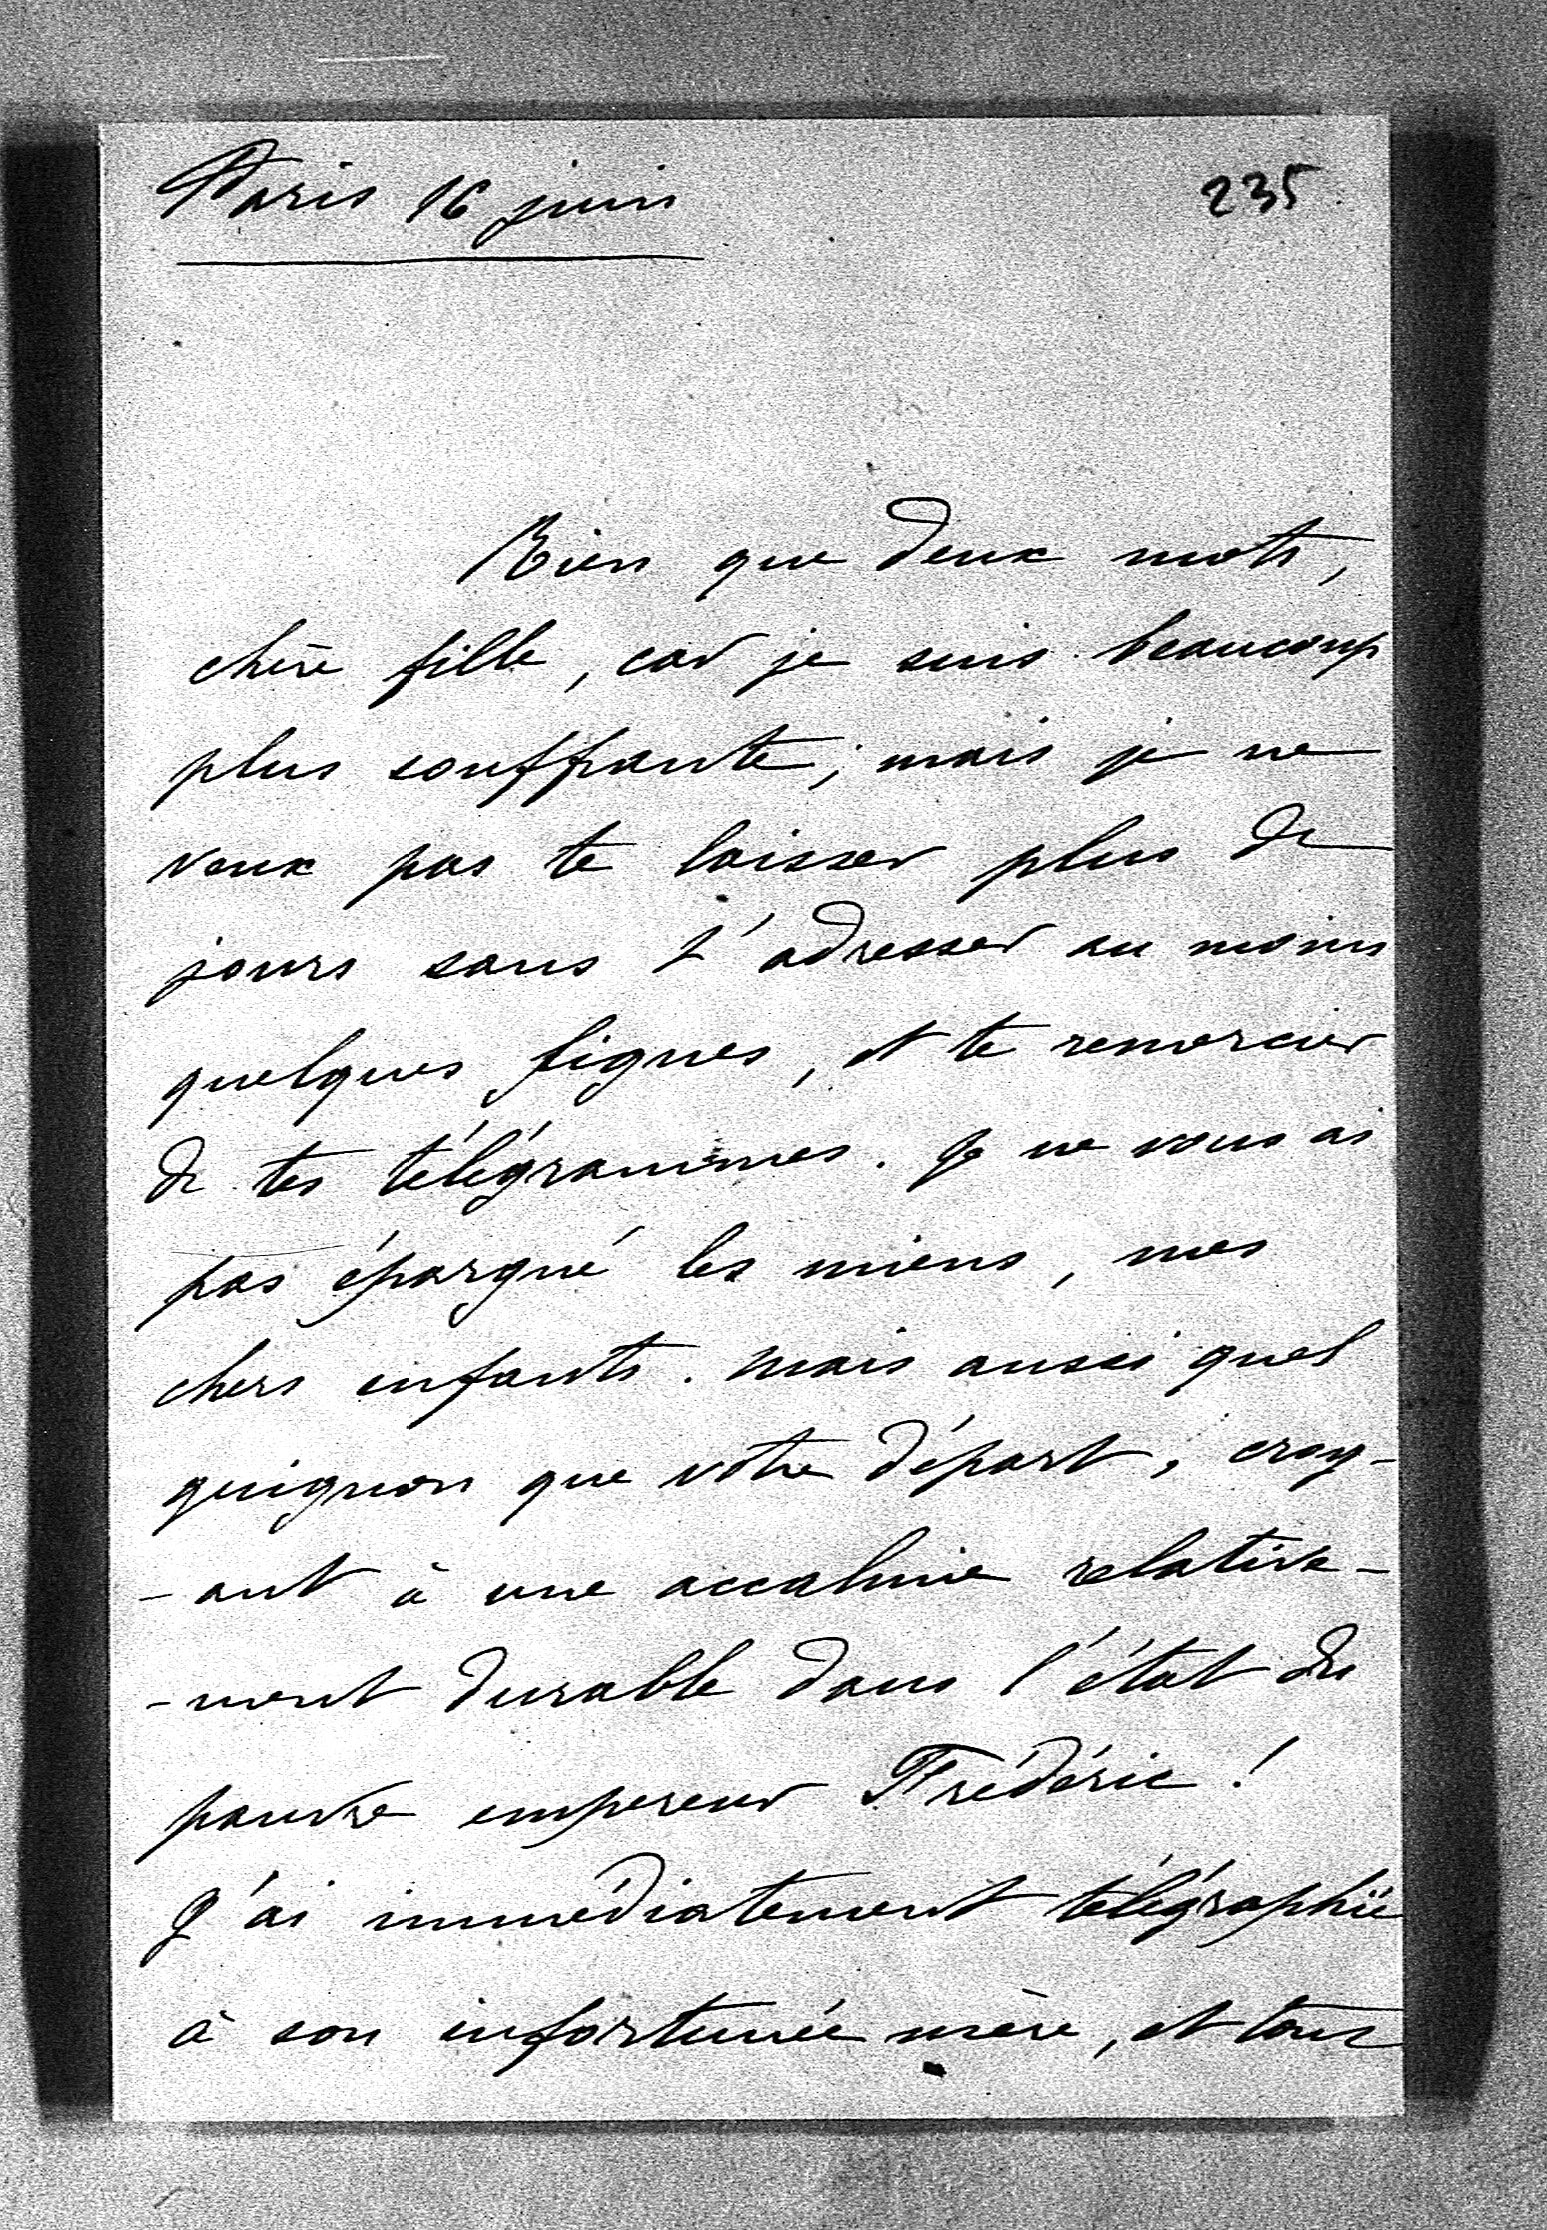 Paris 16 juin
235
Rien que deux mots,
chère fille, car je suis beaucoup
plus souffrante; mais je ne
veux pas te laisser plus de
jours sans t'adresser au moins
quelques lignes, et te remercier
de tes télégrammes. Je ne vous ai
pas épargné les miens, mes
chers enfants. Mais aussi quel
guignon que votre départ, croy-
-ant à une accalmie relative-
-ment durable dans l'état du
pauvre empereur Frédéric!
J'ai immédiatement télégraphié
à son infortunée mère, et tous